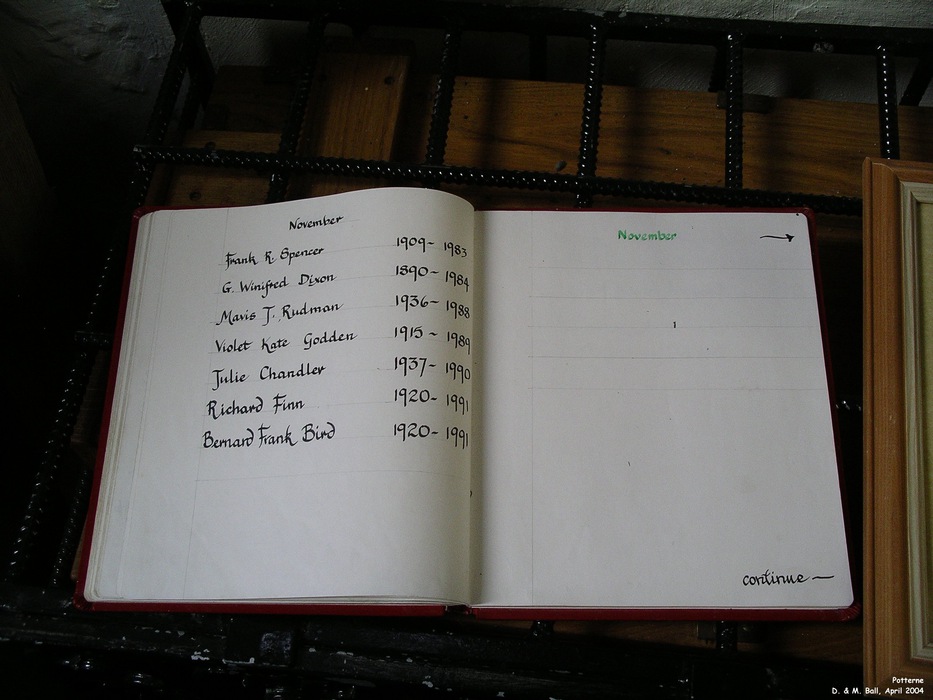 November
Frank R. Spencer 1909- 1983
G. Winifred Dixon 1890- 1984
Mavis J. Rudman 1936- 1988
Violet Kate Godden 1915- 1989
Julie Chandler 1937- 1990
Richard Finn 1920- 1991
Bernard Frank Bird 1920- 1991
November →
continue —
Potterne
D. & M. Ball, April 2004